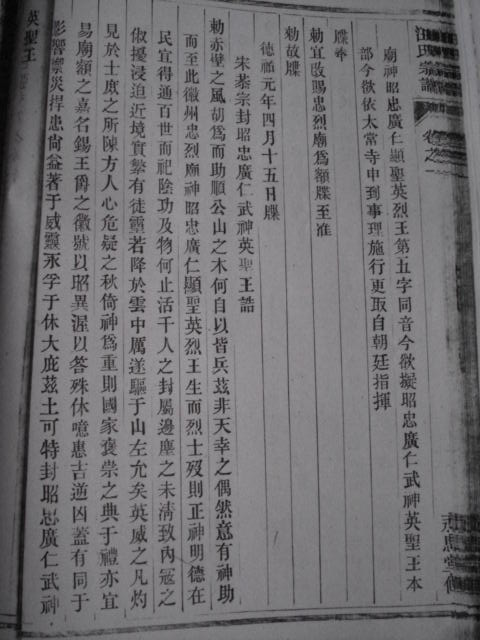 汪氏宗譜
卷之
廟神昭忠廣仁顯聖英烈王第五字同音今欲擬昭忠廣仁武神英聖王本
部今欲依太常寺申到事理施行更取自朝廷指揮
牒奉
勅宜改賜忠烈廟爲額牒至准
勅故牒
德祐元年四月十五日牒
宋恭宗封昭忠廣仁武神英聖王誥
勅赤壁之風胡爲而助順公山之木何自以皆兵茲非天幸之偶然意有神助
而至此徽州忠烈廟神昭忠廣仁顯聖英烈王生而烈士歿則正神明德在
民宜得通百世而祀陰功及物何止活千人之封屬邊塵之未清致內寇之
俶擾浸迫近境實繁有徒靈若降於雲中厲遂驅于山左允矣英威之凡灼
見於士庶之所陳方人心危疑之秋倚神爲重則國家褒崇之典于禮亦宜
易廟額之嘉名錫王爵之徽號以昭異渥以答殊休噫惠吉逆凶蓋有同于
影響禦災捍患尙益著于威靈永孚于休大庇茲土可特封昭忠廣仁武神
英聖王